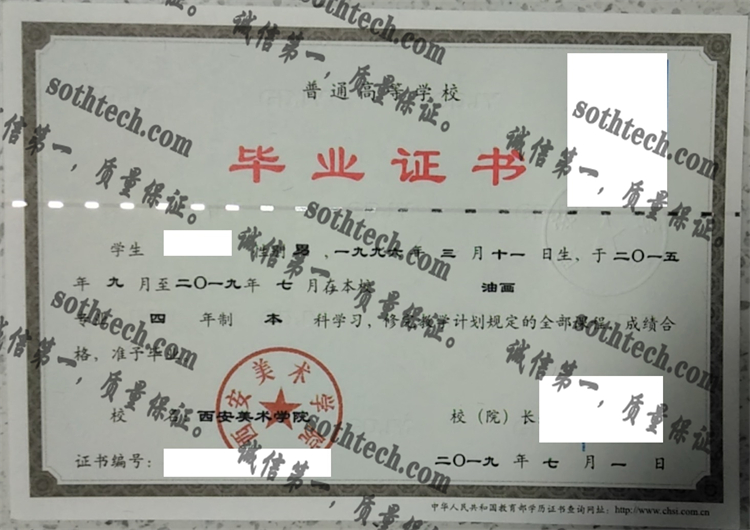 普通高等学校
毕业证书
学生 性别 男 ，一九九六 年 三 月 十一 日生，于 二〇一五
年 九 月至 二〇一九 年 七 月在本校 油画
专业 四 年制 本 科学习，修完教学计划规定的全部课程，成绩合
格，准予毕业。
校 名：西安美术学院
西安美术学院
校（院）长
证书编号：
二〇一九 年 七 月 一 日
中华人民共和国教育部学历证书查询网址：http://www.chsi.com.cn
sothtech.com
诚信第一，质量保证。
sothtech.com
诚信第一，质量保证。
sothtech.com
诚信第一，质量保证。
sothtech.com
诚信第一，质量保证。
sothtech.com
诚信第一，质量保证。
sothtech.com
诚信第一，质量保证。
sothtech.com
诚信第一，质量保证。
sothtech.com